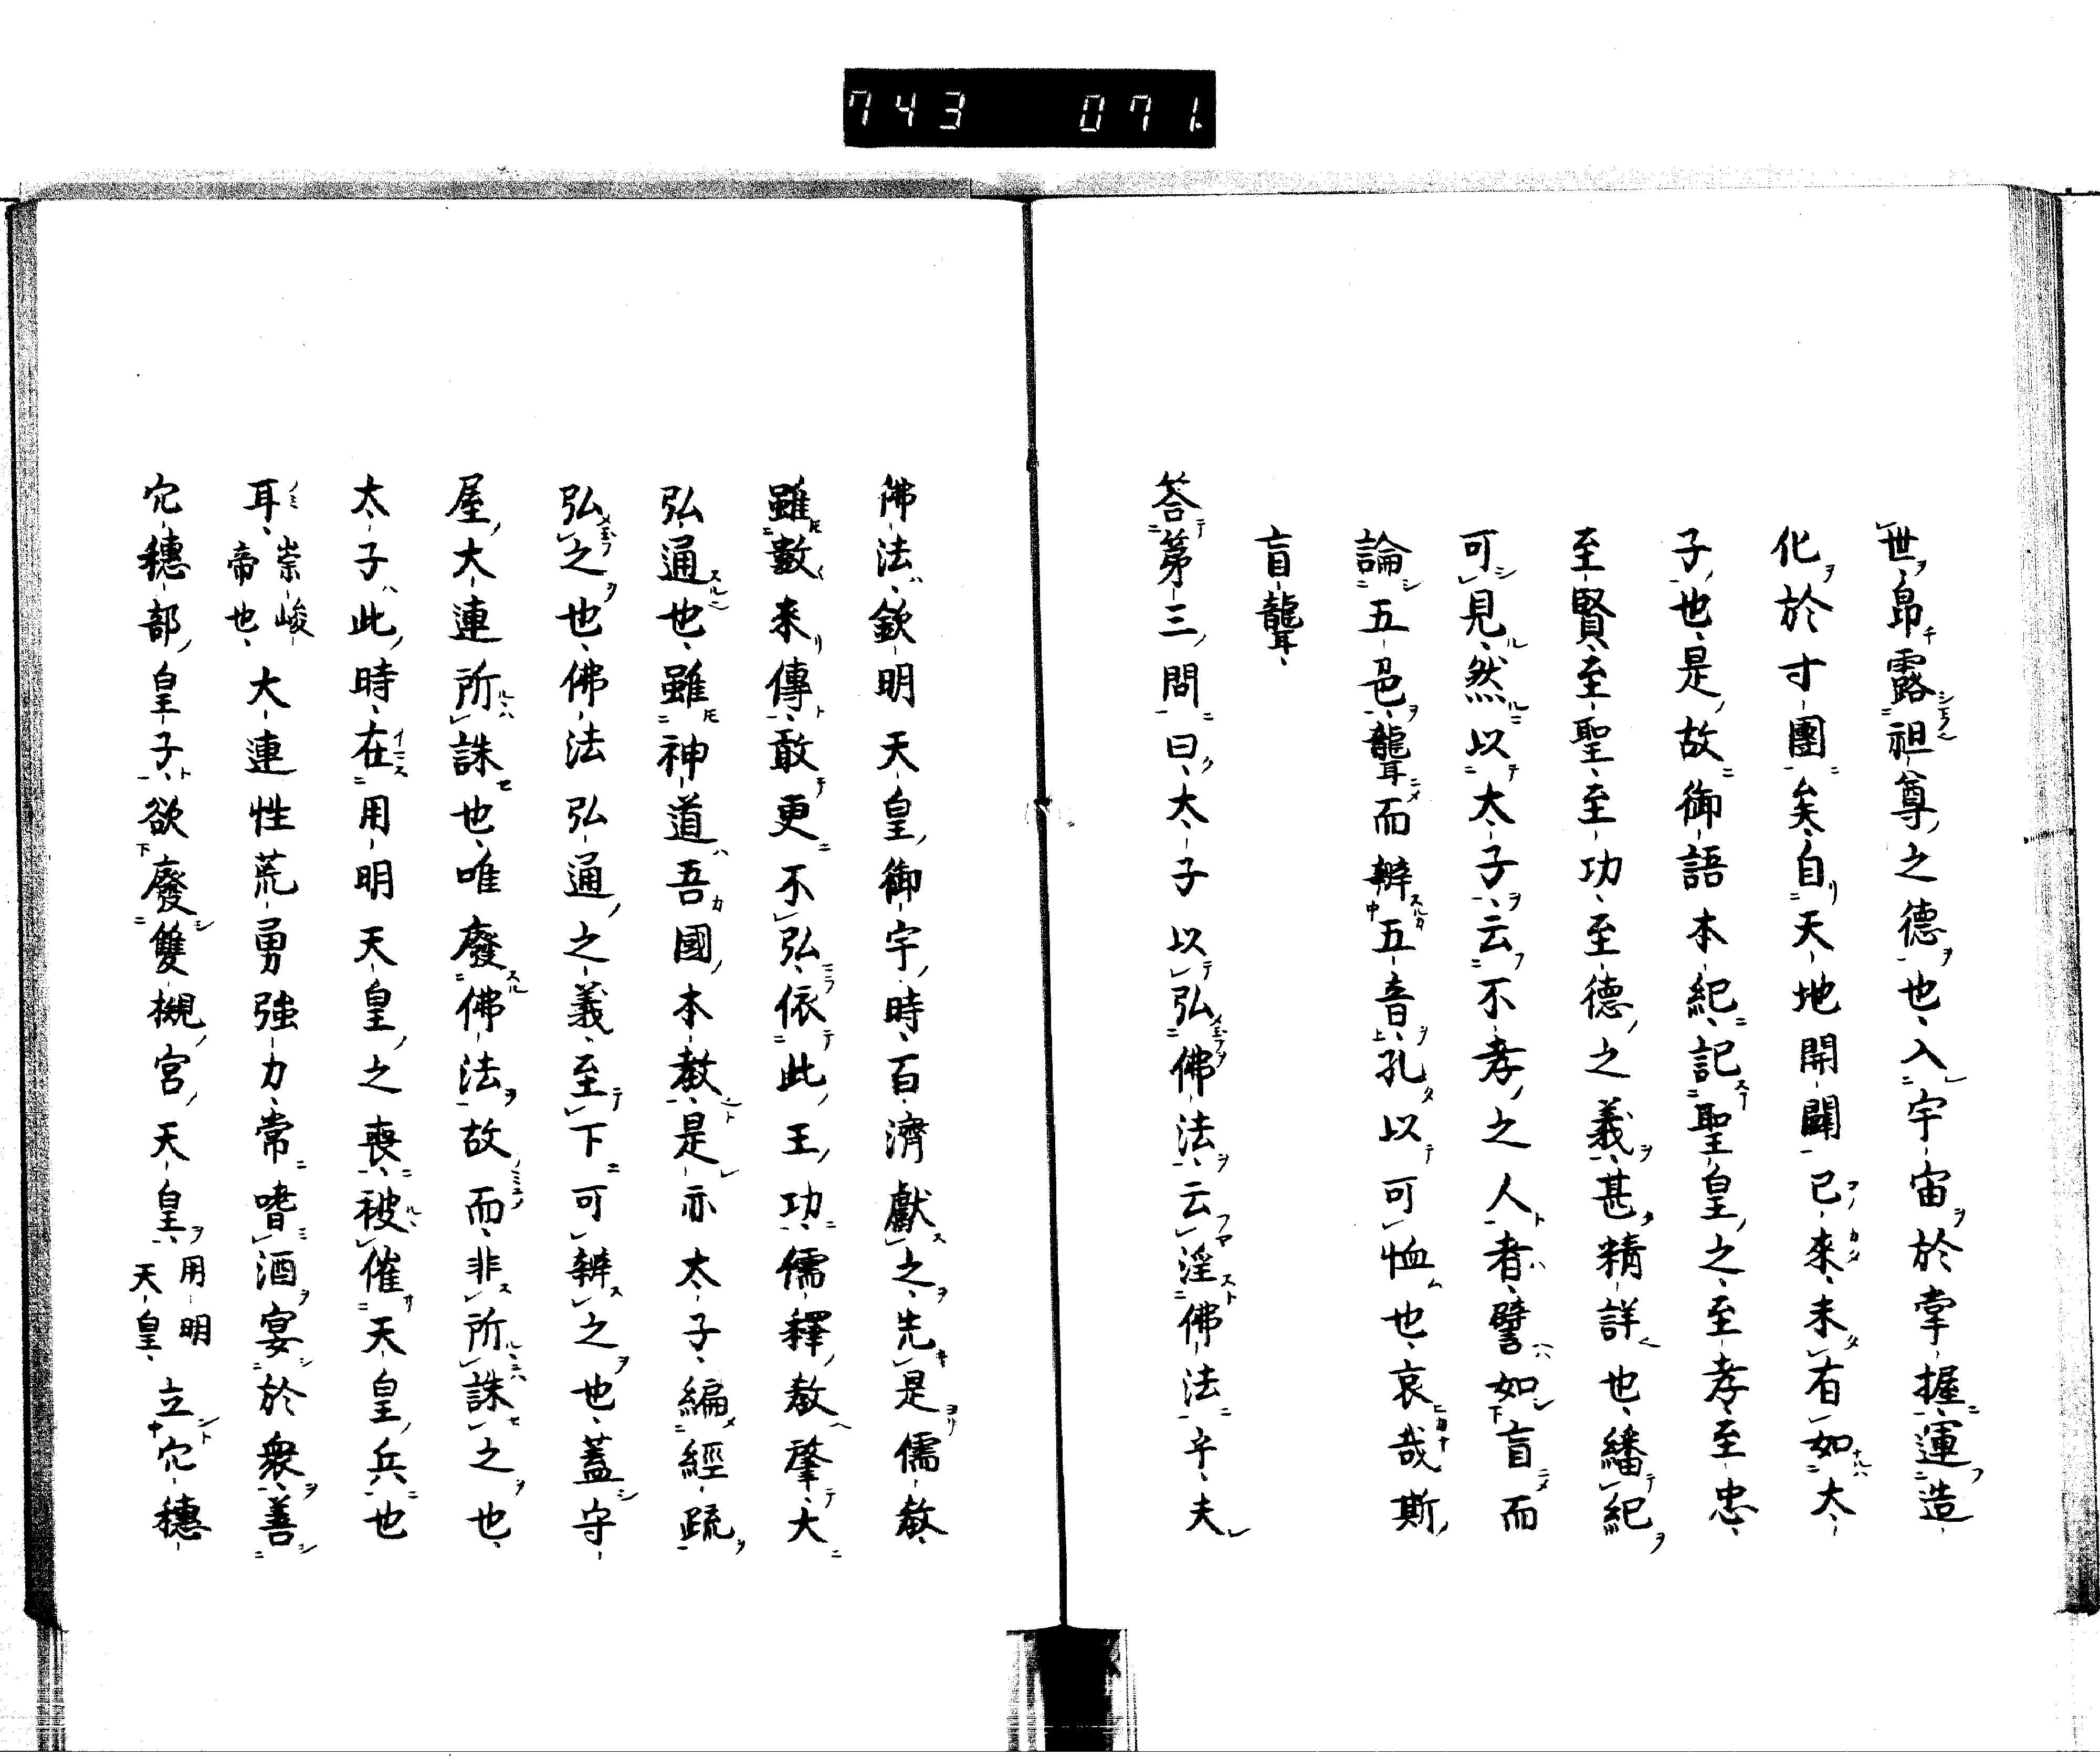 743 071
世昴露祖尊之德也、入宇宙於掌握、運造
化於寸團矣、自天地開闢已來、未有如太
子也、是故御語本紀、記聖皇之至孝至忠、
至賢、至聖、至功、至德之義、甚精詳也、繙紀
可見、然以太子、云不孝之人者、譬如盲而
論五色、聾而辨五音、孔以可恤也、哀哉斯
盲聾、
答第三問曰、太子以弘佛法、云淫佛法、乎夫
佛法、欽明天皇御宇時、百濟獻之、先是儒教
雖數來傳、敢更不弘、依此王功、儒釋教肇大
弘通也、雖神道吾國本教、是亦太子、編經疏
弘之也、佛法弘通之義、至下可辨之也、蓋守
屋大連所誅也、唯廢佛法故而、非所誅之也、
太子此時、在用明天皇之喪、被催天皇兵也
耳、崇峻帝也、大連性荒勇強力、常嗜酒宴於衆、善
穴穗部皇子、欲廢雙槻宮天皇、用明天皇、立穴穗